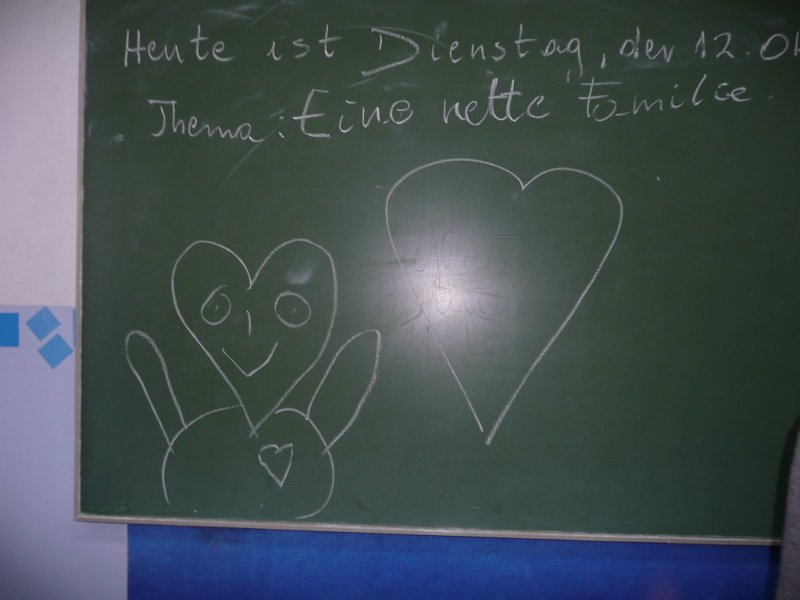 Heute ist Dienstag, der 12. Ok
Thema: Eine nette Familie.